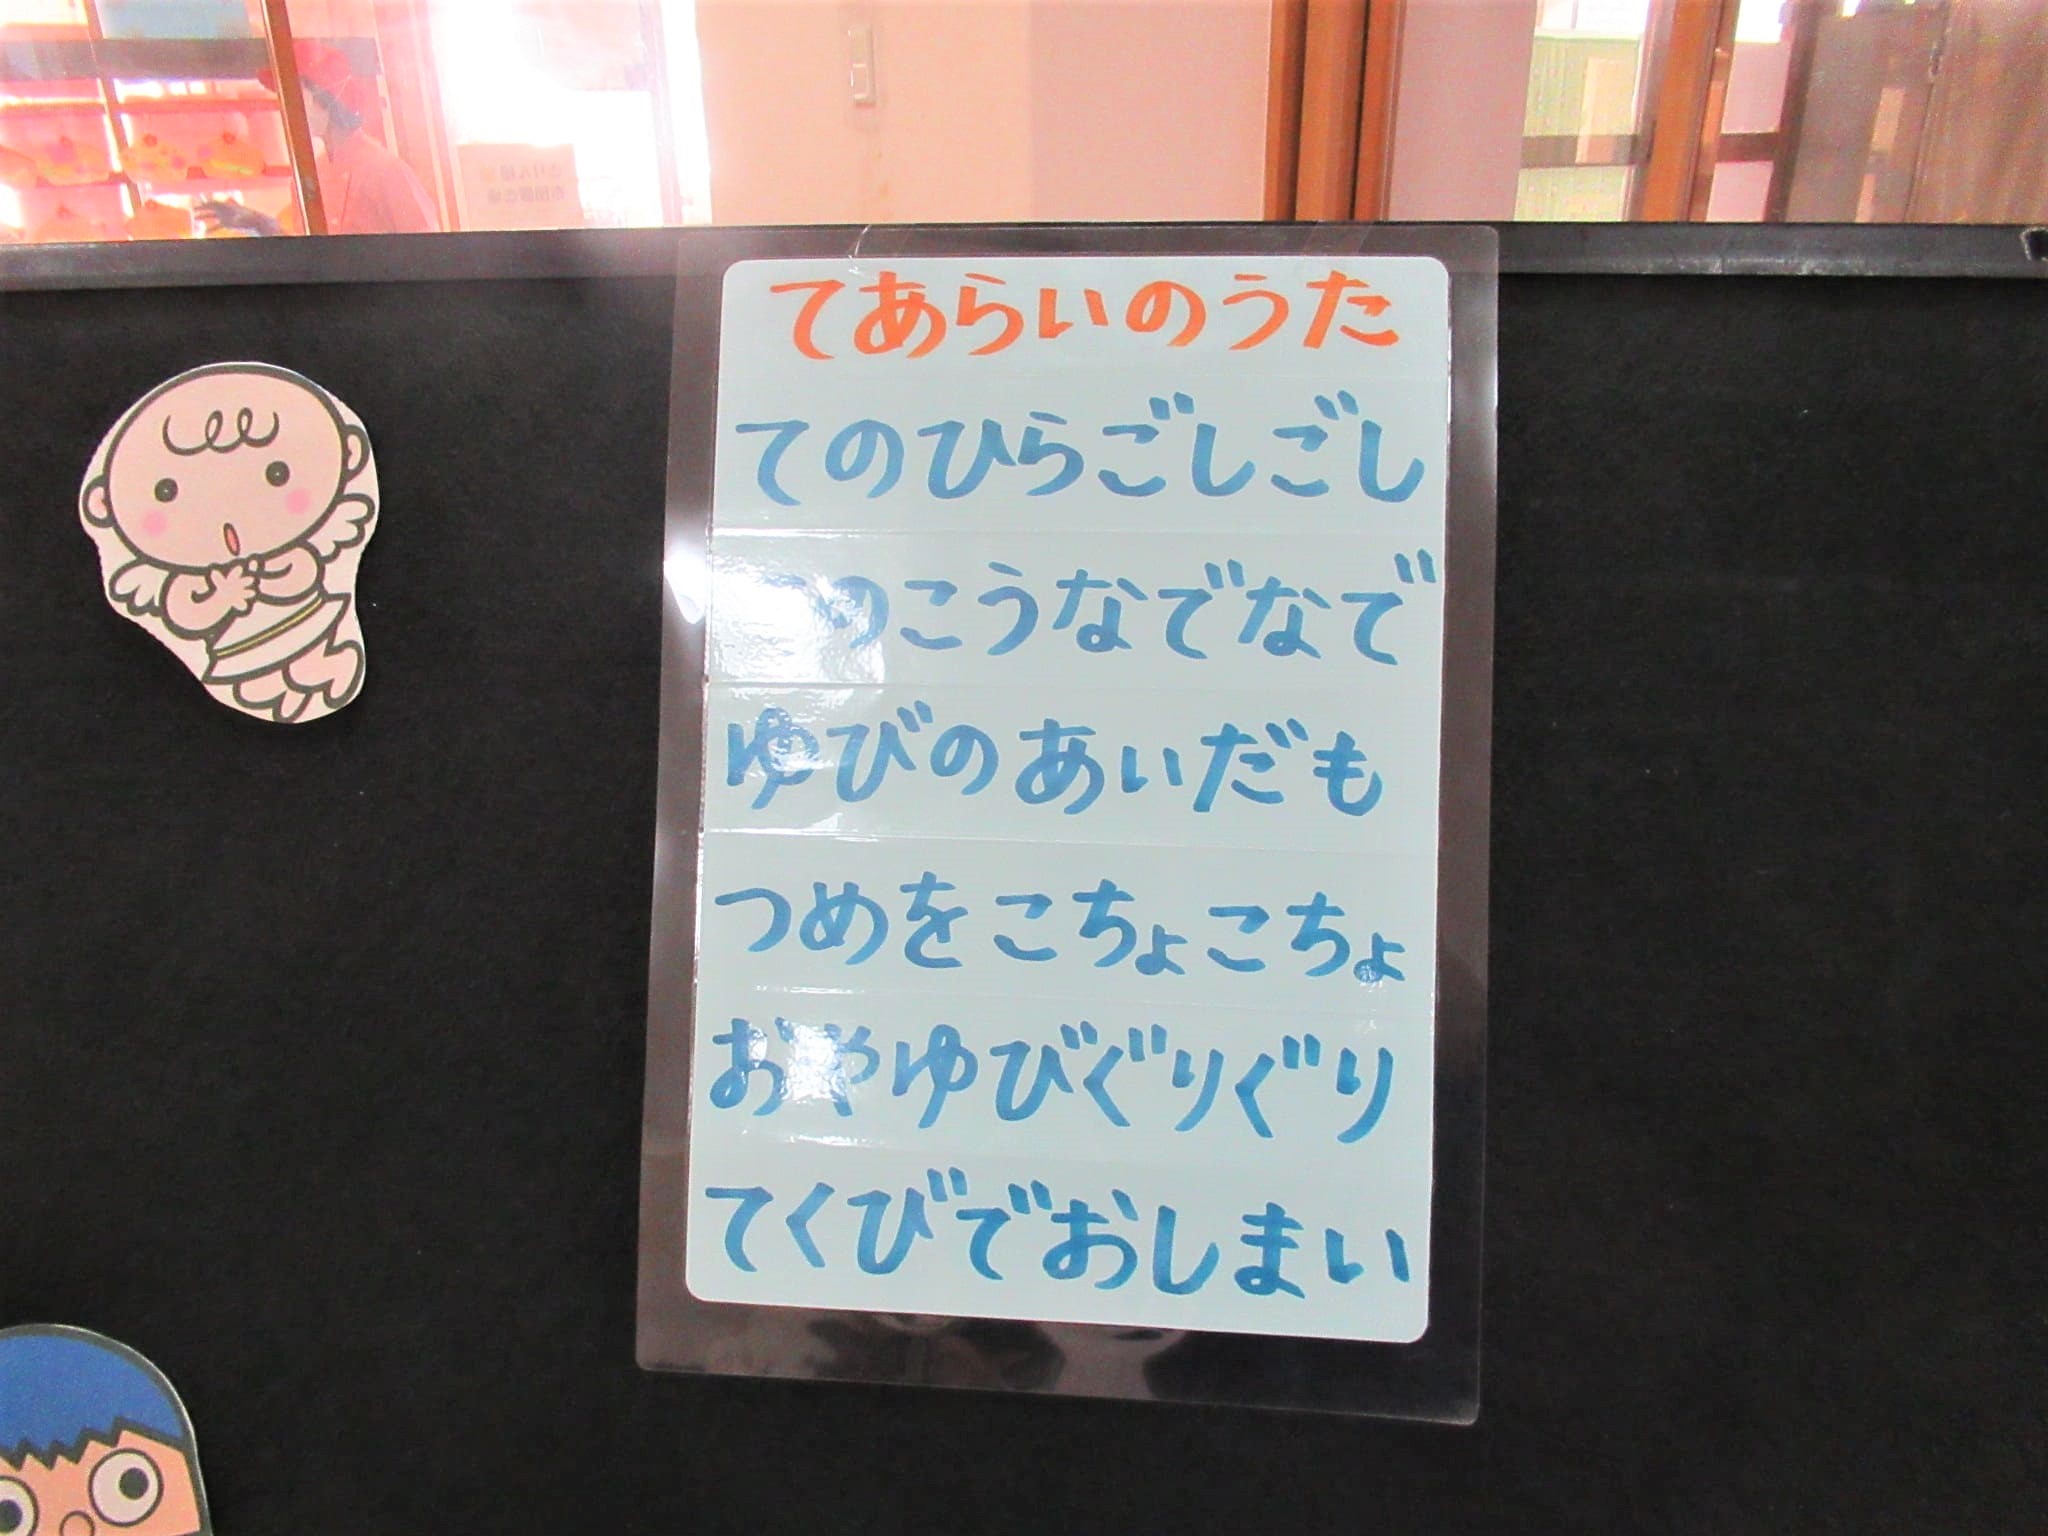 てあらいのうた
てのひらごしごし
てのこうなでなで
ゆびのあいだも
つめをこちょこちょ
おやゆびぐりぐり
てくびでおしまい